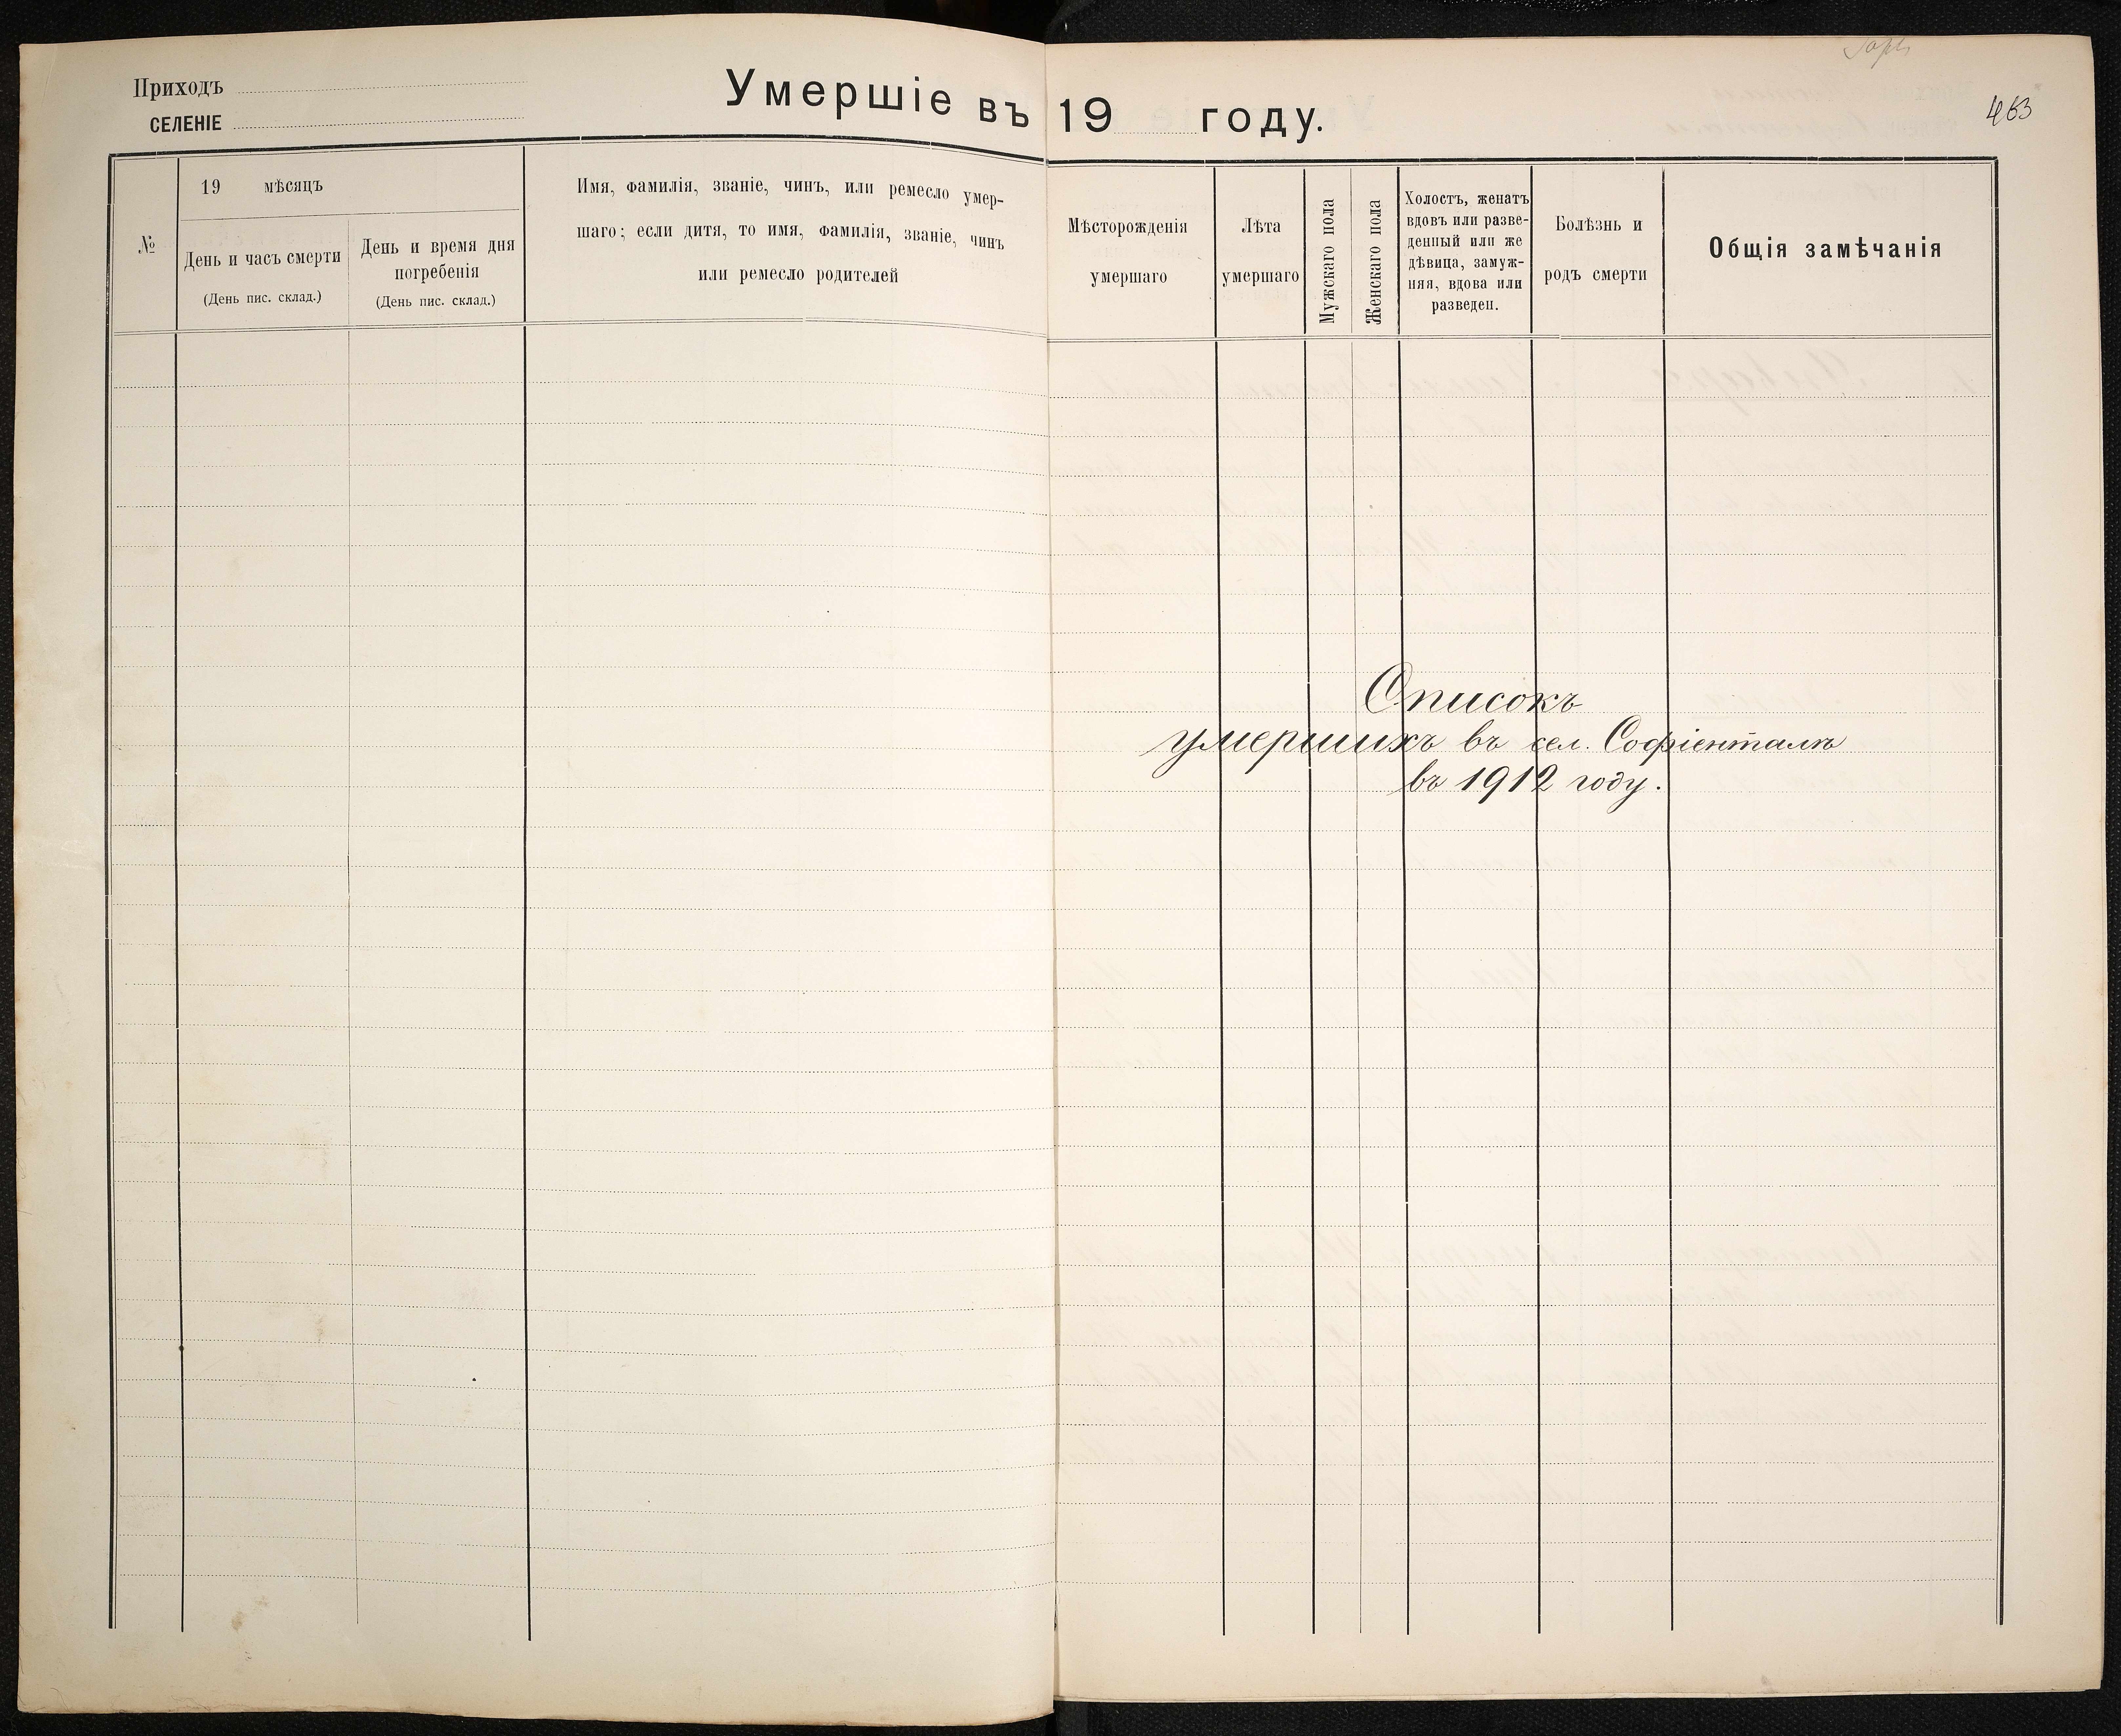 Приходъ
СЕЛЕНІЕ
Умершіе въ 19 году.
463
№
19 мѣсяцъ
День и часъ смерти
(День пис. склад.)
День и время дня
погребенія
(День пис. склад.)
Имя, фамилія, званіе, чинъ, или ремесло умер-
шаго; если дитя, то имя, фамилія, званіе, чинъ
или ремесло родителей
Мѣсторожденія
умершаго
Лѣта
умершаго
Мужскаго пола
Женскаго пола
Холостъ, женатъ
вдовъ или разве-
денный или же
дѣвица, замуж-
няя, вдова или
разведен.
Болѣзнь и
родъ смерти
Общія замѣчанія
Списокъ
умершихъ въ сел. Софіенталѣ
въ 1912 году.